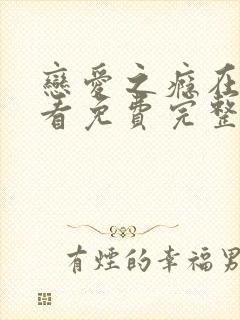 戀愛之癮在
看免費完整
有煙的幸福男